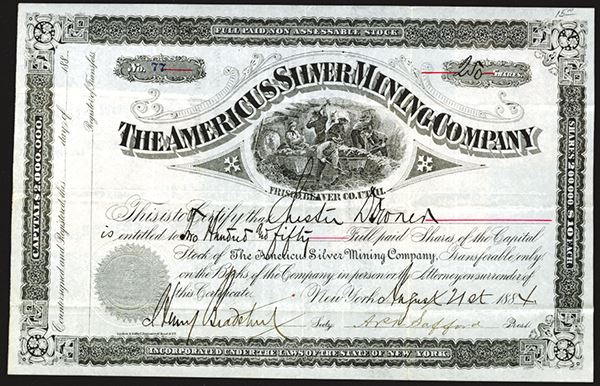 15.00
FULL PAID NON ASSESSABLE STOCK
No. 77
250 SHARES.
THE AMERICUS SILVER MINING COMPANY
FRISCO, BEAVER CO. UTAH.
This is to Certify that Chester Downer
is entitled to Two Hundred & fifty Full paid Shares of the Capital
Stock of The Americus Silver Mining Company, Transferable only
on the Books of the Company in person or by Attorney on surrender of
this Certificate.
New York August 21st 1884
Secty
A.P.K. Safford Prest
INCORPORATED UNDER THE LAWS OF THE STATE OF NEW YORK.
CAPITAL $2,000,000.
SHARES 200,000 $10 EACH.
Countersigned and Registered this day of 188
Registrar of Transfers.